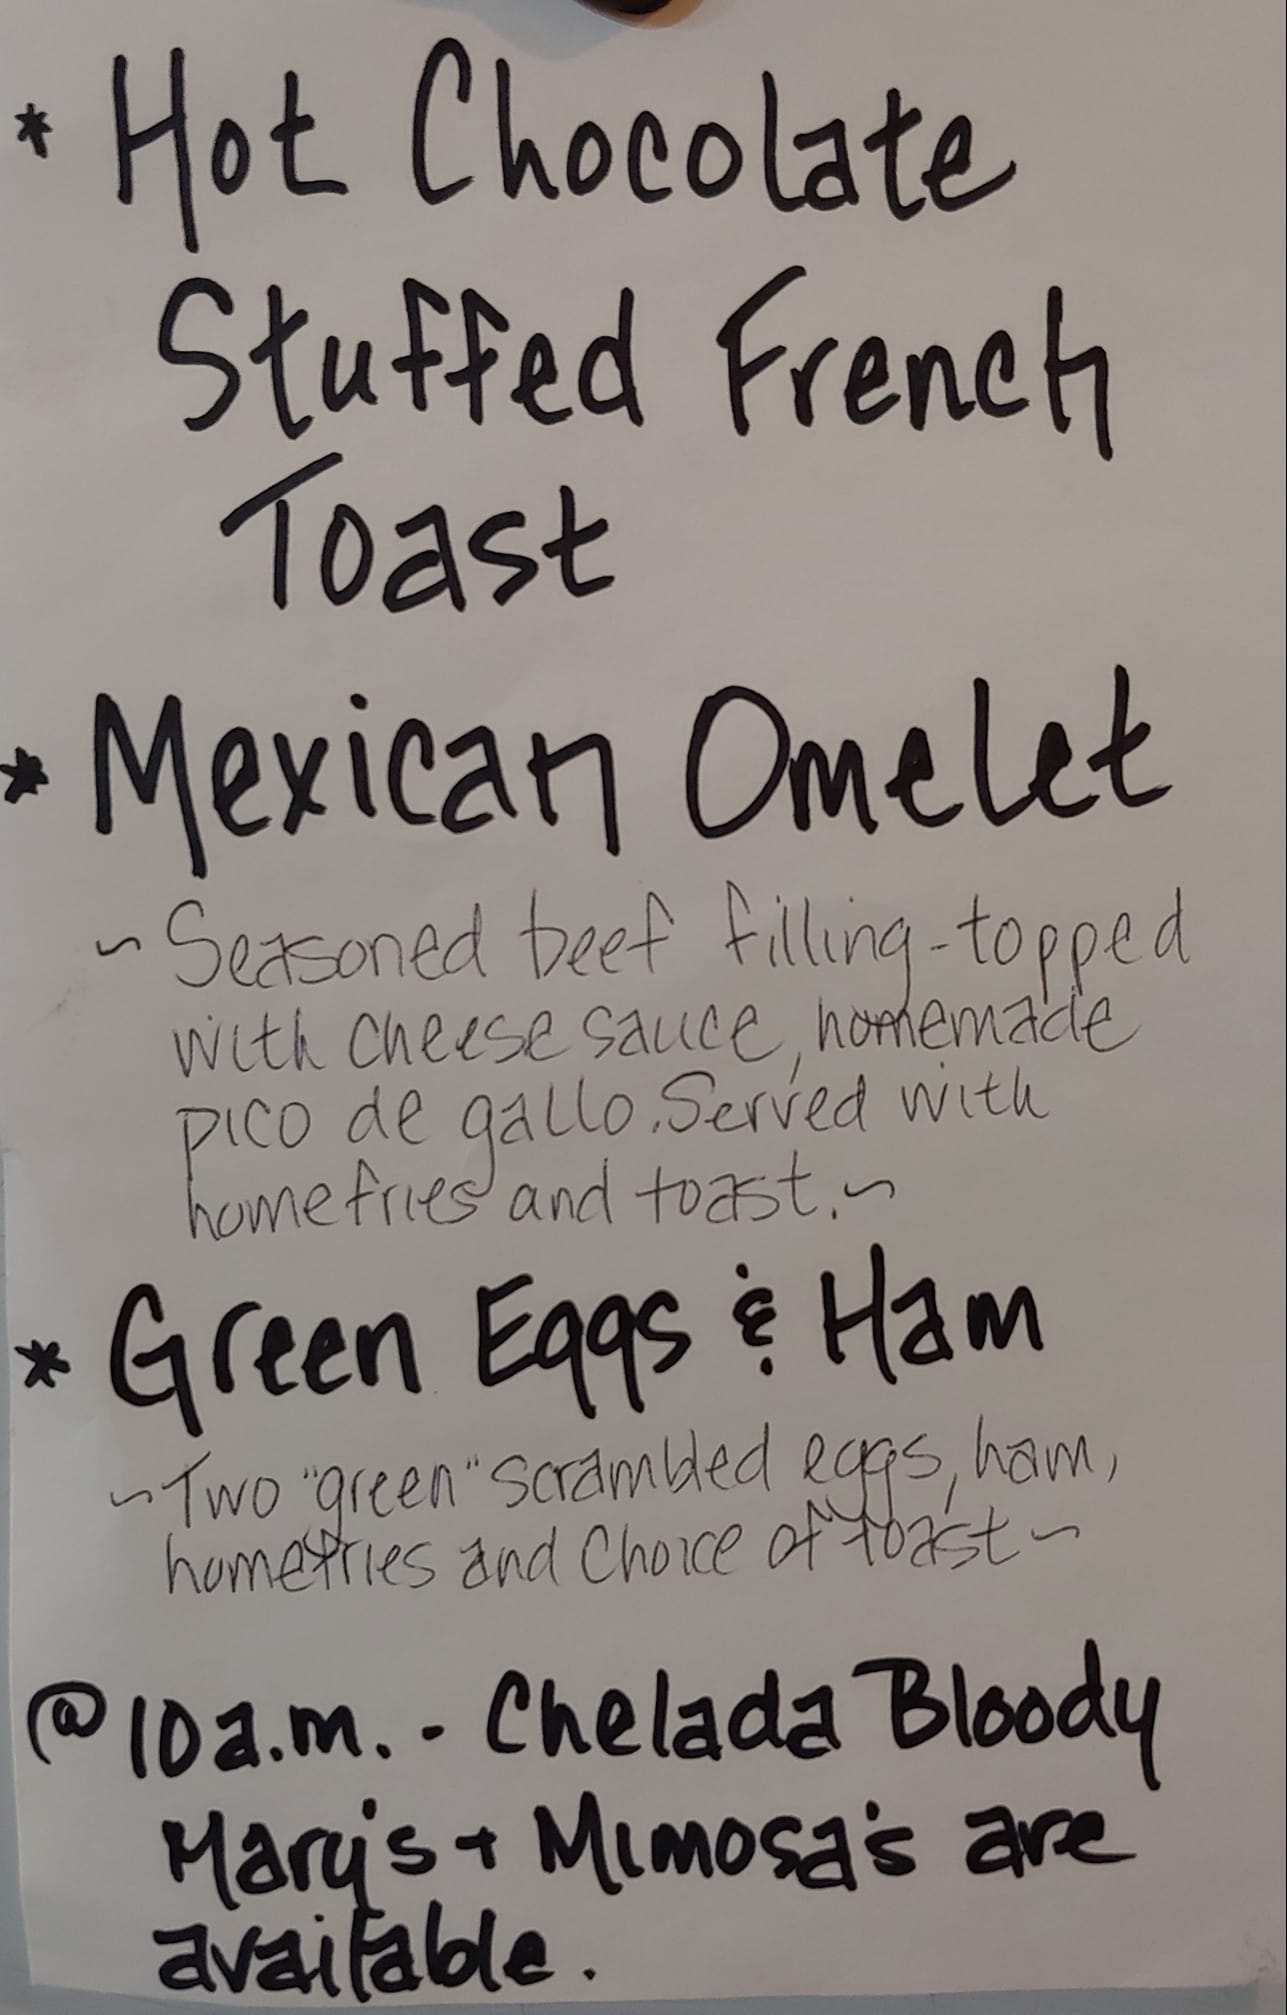 * Hot Chocolate
Stuffed French
Toast
* Mexican Omelet
~ Seasoned beef filling - topped
with cheese sauce, homemade
pico de gallo. Served with
homefries and toast. ~
* Green Eggs & Ham
~ Two "green" scrambled eggs, ham,
homefries and choice of toast ~
@ 10 a.m. - Chelada Bloody
Mary's + Mimosa's are
available.